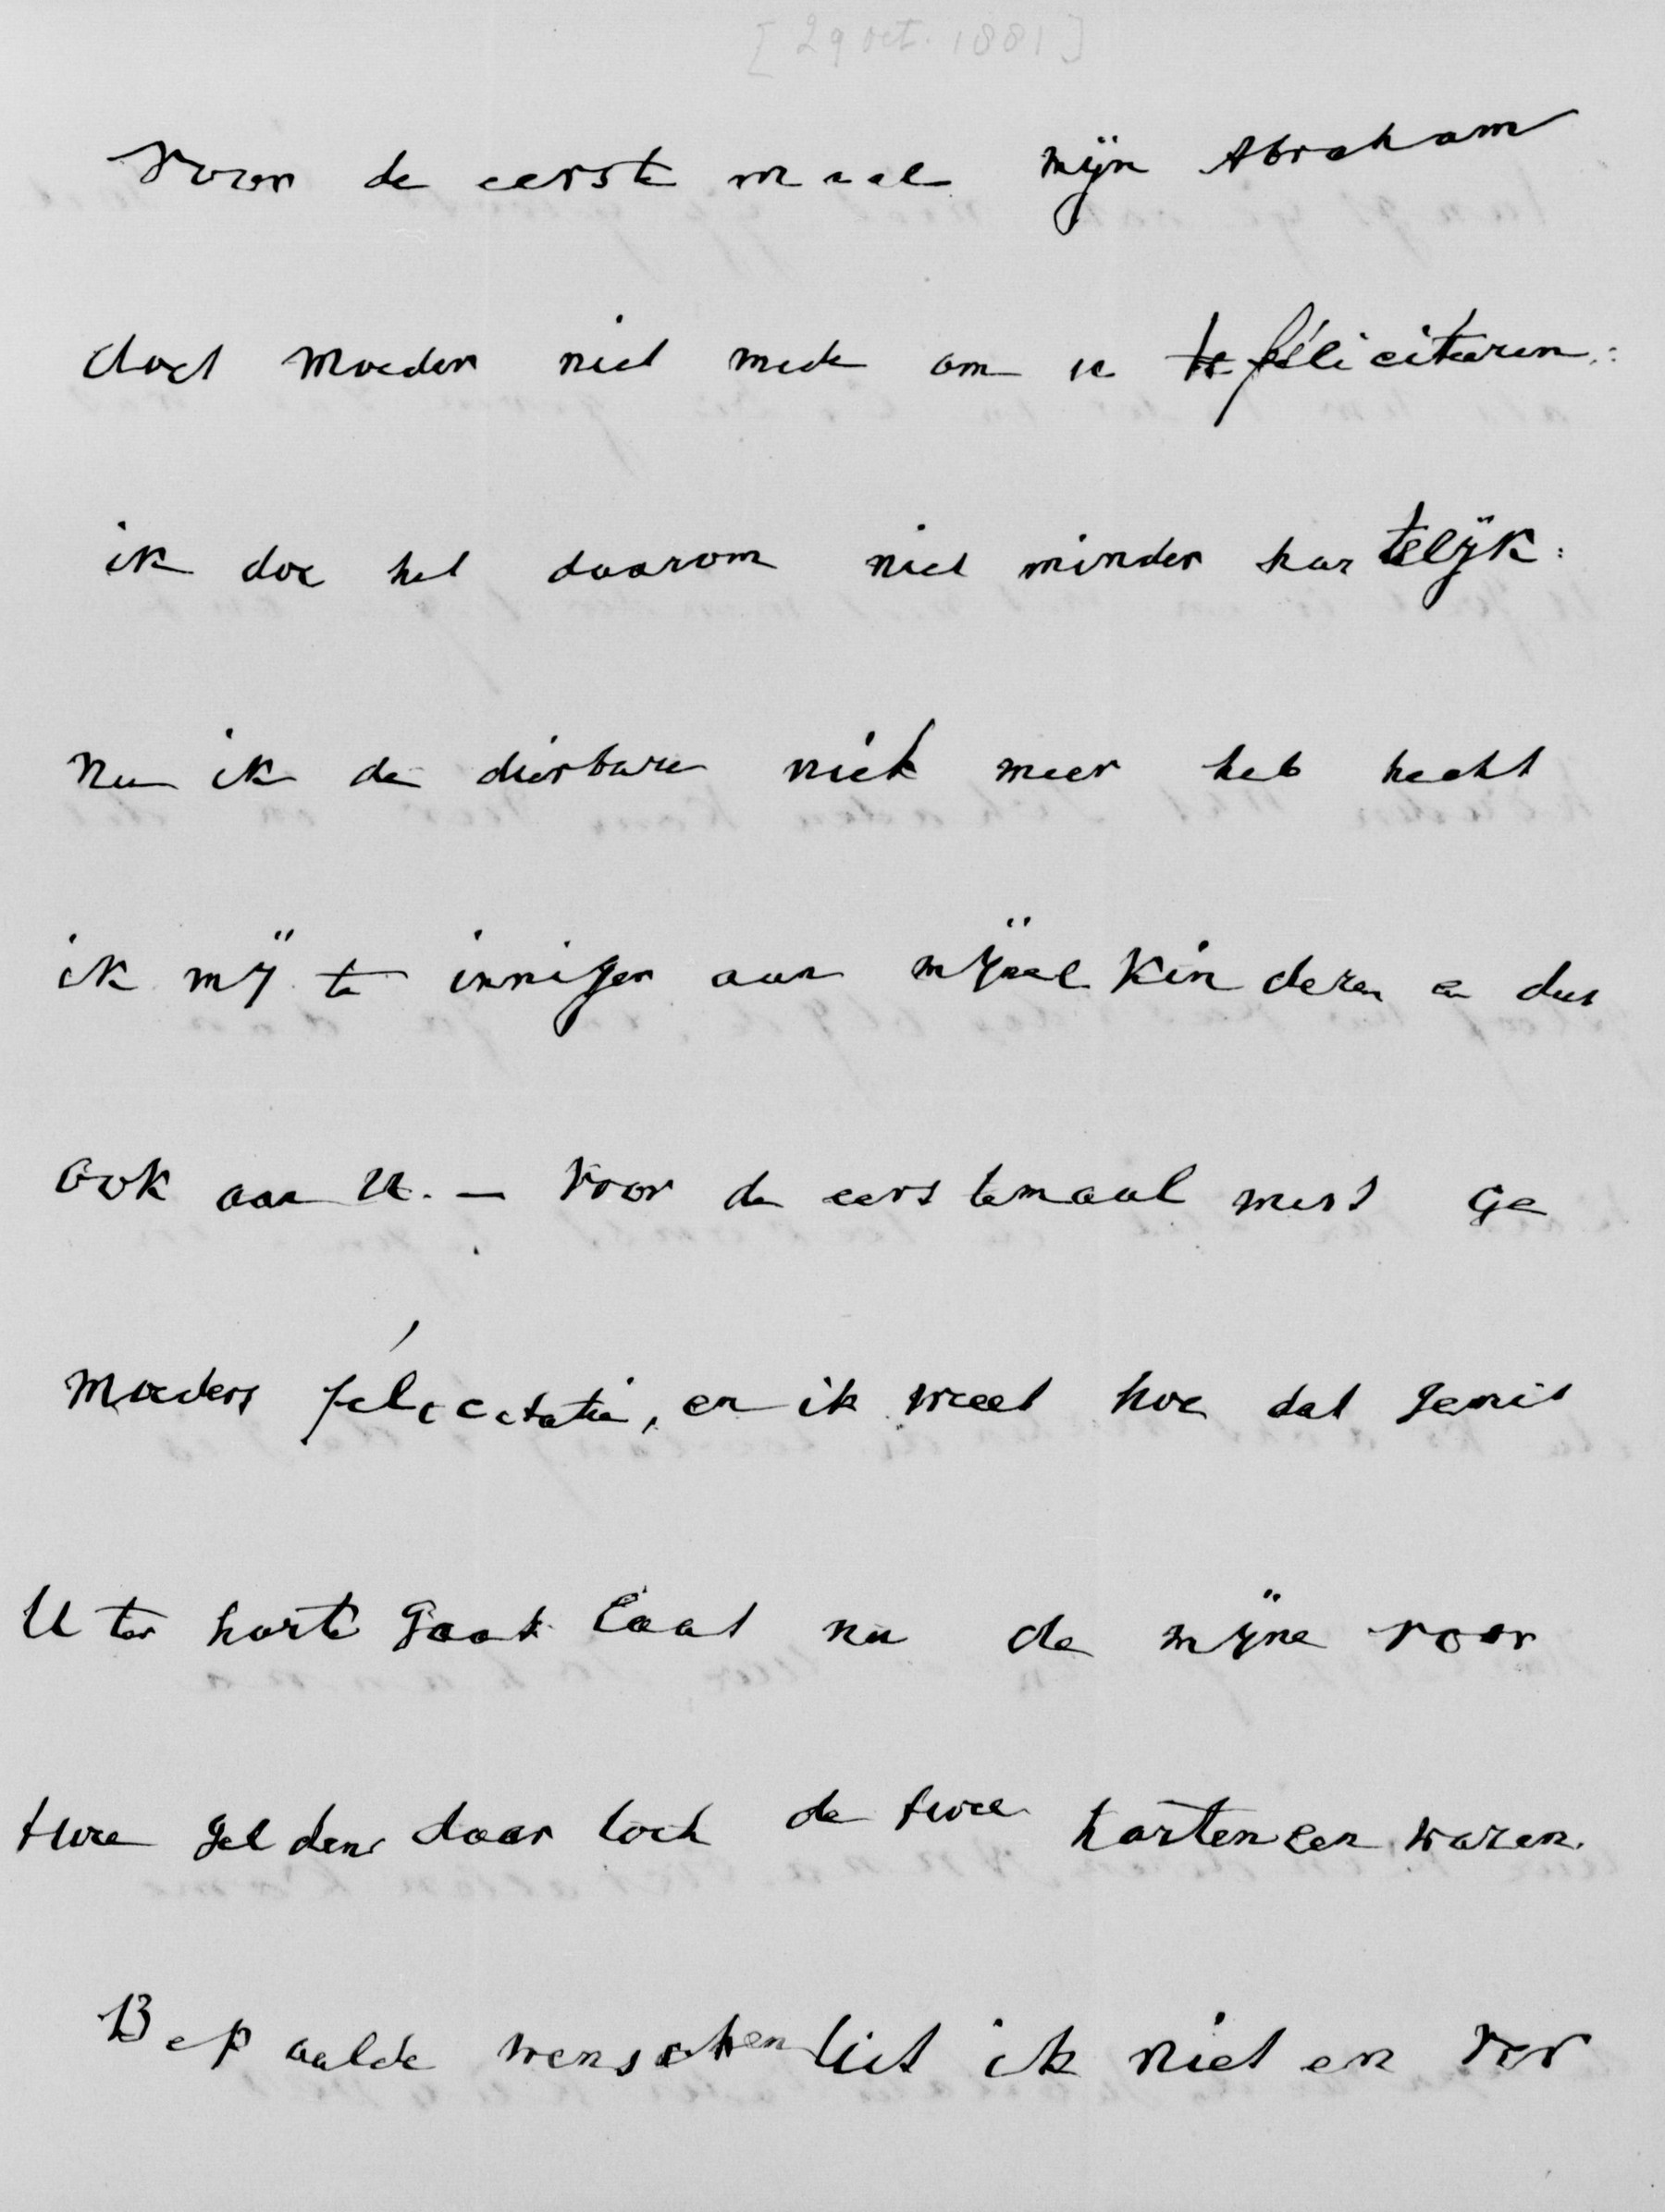 [29 oct. 1881]
Voor de eerste maal mijn Abraham
doet Moeder niet mede om u te féliciteeren:
ik doe het daarom niet minder hartelijk:
nu ik de dierbare niet meer heb hecht
ik mij te inniger aan mijne Kinderen en dus
ook aan U. — Voor de eerstemaal mist ge
Moeders félicitatie, en ik weet hoe dat gemis
U ter harte gaat laat nu de mijne voor
twee gelden daar toch de twee harten een waren.
Bepaalde wenschen uit ik niet en ver